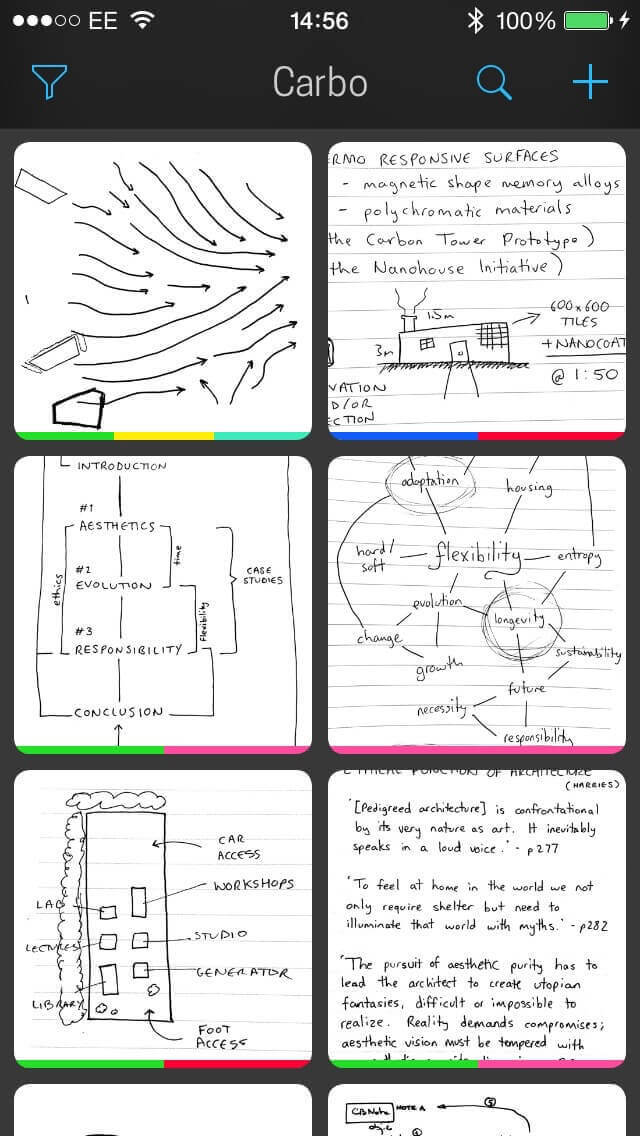 EE 14:56 100%
Carbo
RMO RESPONSIVE SURFACES
- magnetic shape memory alloys
- polychromatic materials
the Carbon Tower Prototype)
the Nanohouse Initiative)
1.5m
600x600
TILES
3m
+NANOCOAT
@ 1:50
VATION
D/OR
ECTION
INTRODUCTION
#1
AESTHETICS
time
#2
EVOLUTION
ethics
CASE
STUDIES
flexibility
#3
RESPONSIBILITY
CONCLUSION
adaptation
housing
hard/
soft
flexibility
entropy
evolution
longevity
change
sustainability
growth
future
necessity
responsibility
CAR
ACCESS
WORKSHOPS
LAB
STUDIO
LECTURES
GENERATOR
LIBRARY
FOOT
ACCESS
OF ARCHITECTURE
(HARRIES)
'[Pedigreed architecture] is confrontational
by its very nature as art. It inevitably
speaks in a loud voice.' - p277
'To feel at home in the world we not
only require shelter but need to
illuminate that world with myths.' - p282
'The pursuit of aesthetic purity has to
lead the architect to create utopian
fantasies, difficult or impossible to
realize. Reality demands compromises;
aesthetic vision must be tempered with
CB Note NOTE A